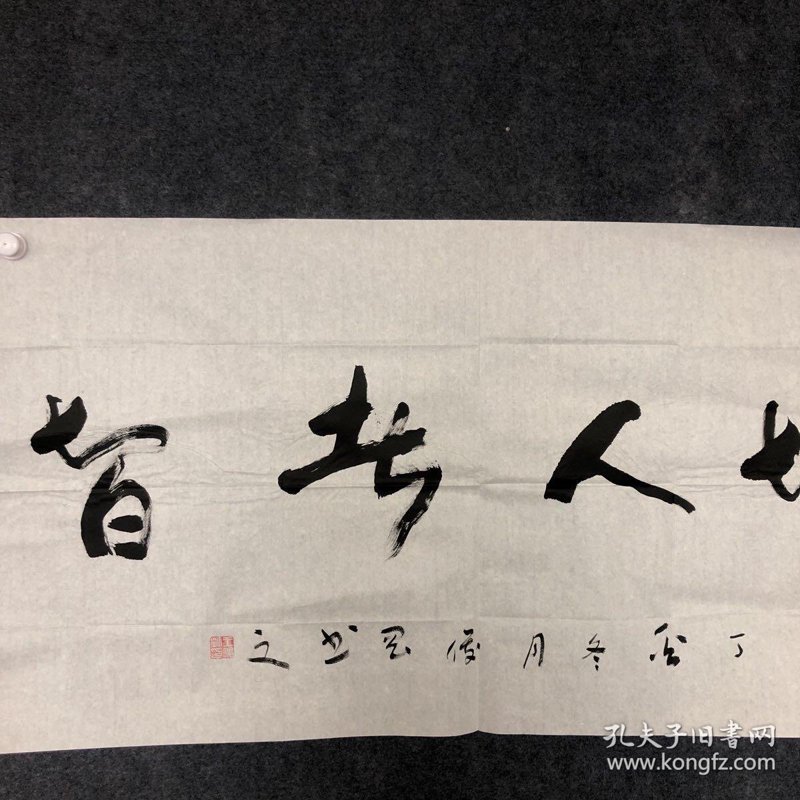 人者智
丁酉冬月书之
孔夫子旧書网
www.kongfz.com